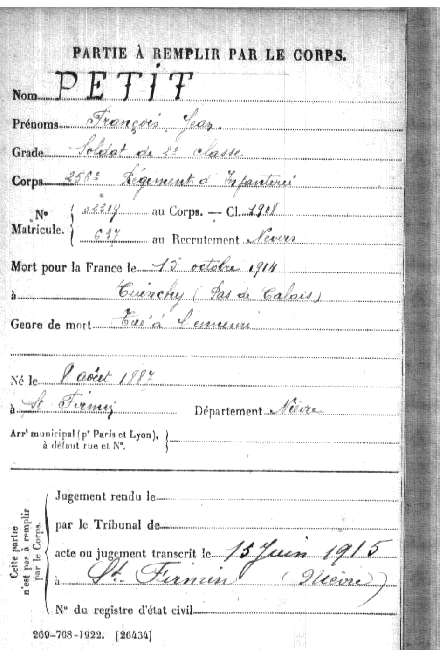 PARTIE À REMPLIR PAR LE CORPS.
Nom PETIT
Prénoms François Jean
Grade Soldat de 2e classe
Corps 256e Régiment d'Infanterie
No 02219 au Corps. — Cl. 1908
Matricule. 637 au Recrutement Nevers
Mort pour la France le 13 octobre 1914
à Cuinchy (Pas de Calais)
Genre de mort Tué à l'ennemi
Né le 8 août 1887
à St Firmin Département Nièvre
Arrt municipal (pr Paris et Lyon),
à défaut rue et No.
Cette partie
n'est pas à remplir
par le Corps.
Jugement rendu le
par le Tribunal de
acte ou jugement transcrit le 15 Juin 1915
à St. Firmin (Nièvre)
No du registre d'état civil
269-708-1922. [26434]